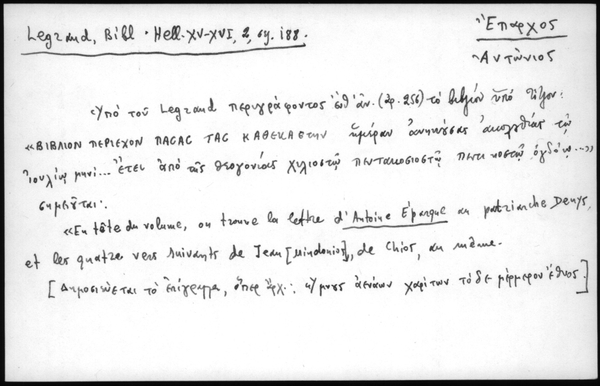 Legrand, Bibl. Hell. XV-XVI, 2, σχ. 188.
Ἔπαρχος
Ἀντώνιος
Ὑπὸ τοῦ Legrand περιγράφοντος ἐνθ' ἀν. (ἀρ. 256) τὸ βιβλίον ὑπὸ τίτλον:
«ΒΙΒΛΙΟΝ ΠΕΡΙΕΧΟΝ ΠΑCΑC ΤΑC ΚΑΘΕΚΑCΤΗΝ ἡμέραν ἀνηκούσας ἀκολουθίας τῷ
ἰουλίῳ μηνί... Ἔτει ἀπὸ τῆς θεογονίας χιλιοστῷ πεντακοσιοστῷ πεντηκοστῷ ὀγδόῳ...»
σημειοῦται:
«En tête du volume, on trouve la lettre d'Antoine Éparque au patriarche Denys,
et les quatre vers suivants de Jean [Mindonios], de Chios, au même.
[Δημοσιεύεται τὸ ἐπίγραμμα, ὅπερ ἄρχ.: ὕμνους ἀενάων χαρίτων τόδε μέρμερον ἔθνος.]